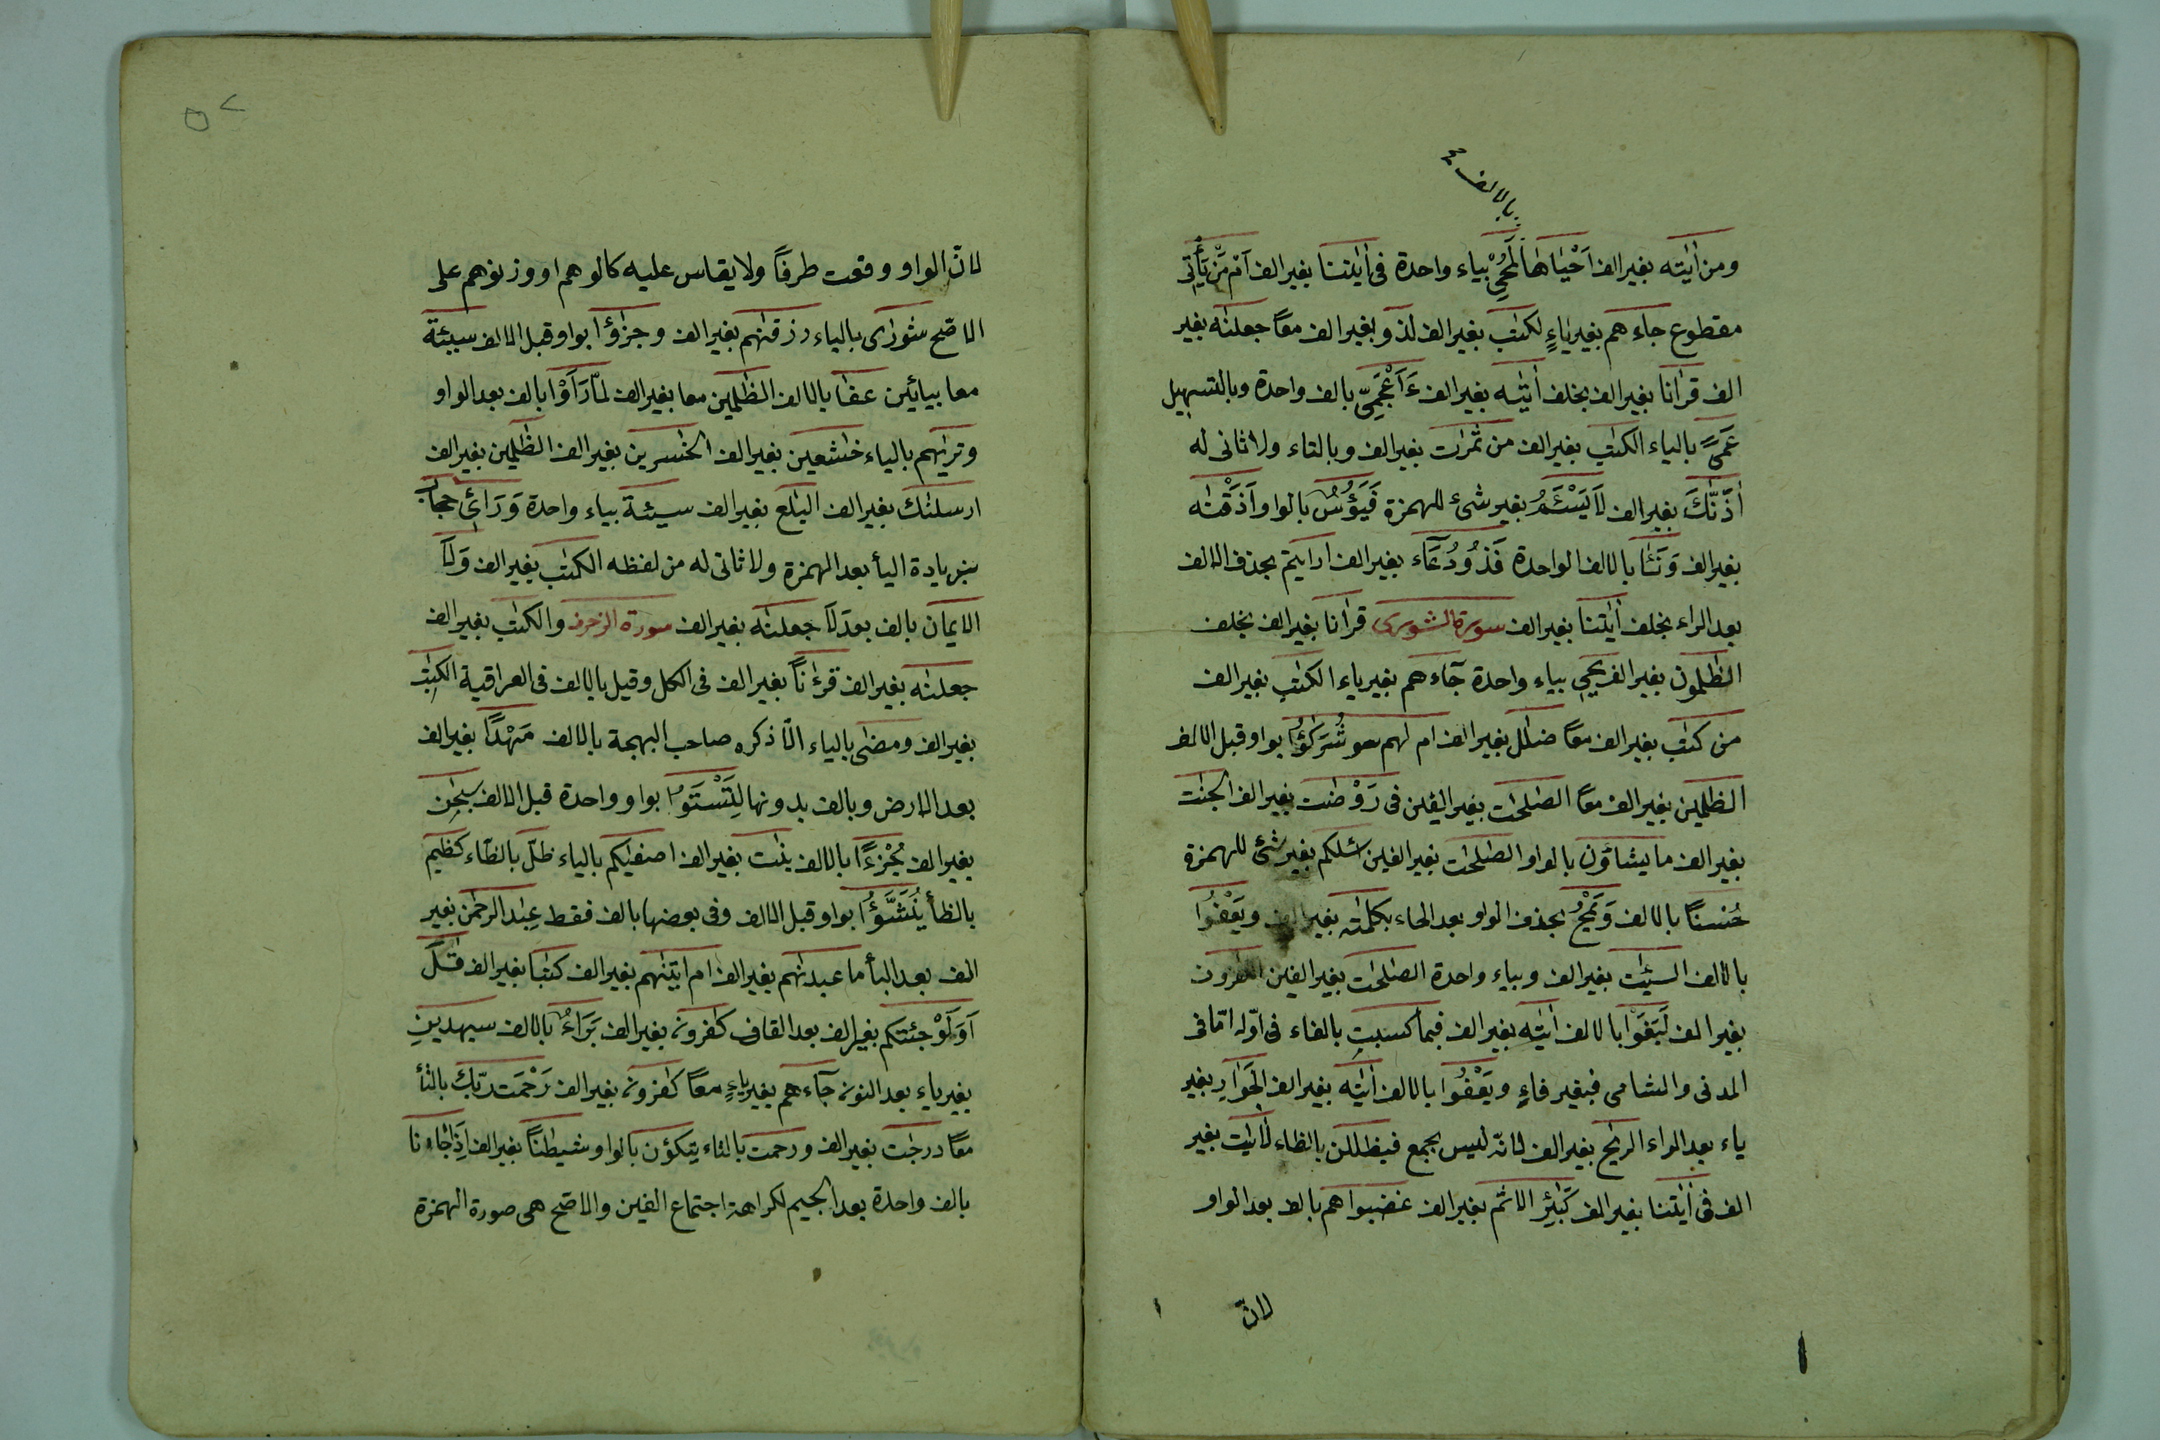 بالالف
ومن اٰيٰته بغير الف اَحْيَاهَا لَمُحْيِ بياء واحدة فى اٰيٰتنا بغير الف اَم مَّن يَأْتِى
مقطوع جاءهم بغير ياءٍ لكتٰب بغير الف لذو بغير الف معًا جعلنٰه بغير
الف قرانا بغير الف بخلف اٰيٰته بغير الف ءَاَعْجَمِىّ بالف واحدة وبالتسهيل
عَمًى بالياء الكتٰب بغير الف من ثمرٰت بغير الف وبالتاء ولا ثانى له
اٰذَنّٰكَ بغير الف لَا يَسْئَمُ بغير شئ للهمزة فَيَؤُسٌ بالواو اَذَقْنٰه
بغير الف وَنَئَا بالالف الواحدة فَذُو دُعَآء بغير الف ارايتم بحذف الالف
بعد الراء بخلف اٰيٰتنا بغير الف سورة الشورى قرانا بغير الف بخلف
الظٰلمون بغير الف يحي بياء واحدة جآءهم بغير ياء الكتٰب بغير الف
من كتٰب بغير الف معًا ضلٰل بغير الف ام لهم هو شُرَكٰؤُا بواو قبل الالف
الظٰلمين بغير الف معًا الصٰلحٰت بغير الفين فى رَوْضٰت بغير الف الجنّٰت
بغير الف ما يشاؤن بالواو الصٰلحٰت بغير الفين اسئلكم بغير شئ للهمزة
حُسْنًا بالالف وَيَمْحُ بحذف الواو بعد الحاء بكلمٰته بغير الف ويَعْفُوا
بالالف السيّئٰت بغير الف وبياء واحدة الصٰلحٰت بغير الفين الكٰفرون
بغير الف لَبَغَوْا بالالف اٰيٰته بغير الف فبما كسبت بالفاء فى اوّله امّا فى
المدنى والشامى فبغير فاءٍ ويَعْفُوا بالالف اٰيٰته بغير الف الجَوَارِ بغير
ياء بعد الراء الريٰح بغير الف لانّه ليس بجمع فيظللن بالظاء لَاٰيٰت بغير
الف فى اٰيٰتنا بغير الف كَبٰئِرَ الاثم بغير الف غضبوا هم بالف بعد الواو
لانّ
لانّ الواو وقعت طرفًا ولا يقاس عليه كالوهم او وزنوهم على
الاصّح شورٰى بالياء رزقنٰهم بغير الف وجزٰؤُا بواو قبل الالف سيئة
معا بيائين عفا بالالف الظٰلمين معا بغير الف لمّا رَاَوْا بالف بعد الواو
وتريٰهم بالياء خٰشعين بغير الف الخٰسرين بغير الف الظٰلمين بغير الف
ارسلنٰك بغير الف البلٰغ بغير الف سيئة بياء واحدة وَرَائِ حجاب
بزيادة اليأ بعد الهمزة ولا ثانى له من لفظه الكتٰب بغير الف وَلَا
الايمان بالف بعد لَا جعلنٰه بغير الف سورة الزخرف والكتٰب بغير الف
جعلنٰه بغير الف قرءٰنًا بغير الف فى الكل وقيل بالالف فى العراقية الكتٰبِ
بغير الف ومضٰى بالياء الّا ذكره صاحب البهجة بالالف مَهْدًا بغير الف
بعد الارض وبالف بدونها لِتَسْتَوٗا بواو واحدة قبل الالف سبحٰن
بغير الف جُزْءًا بالالف بنٰت بغير الف اصفيٰكم بالياء ظلّ بالظاء كظيم
بالظأ يُنَشَّؤُا بواو قبل الالف وفى بعضها بالف فقط عِبٰد الرحمٰن بغير
الف بعد البأ ما عبدنٰهم بغير الف ام اٰتينٰهم بغير الف كتٰبا بغير الف قٰلَ
اَوَلَوْ جئتكم بغير الف بعد القاف كٰفرون بغير الف بَرَاءٌ بالالف سيهدينِ
بغير ياء بعد النون جآءهم بغير ياءٍ معًا كٰفرون بغير الف رَحْمَت ربّك بالتأ
معًا درجٰت بغير الف ورحمت بالتاء يتكؤن بالواو شيطٰنًا بغير الف اِذَا جَاءنا
بالف واحدة بعد الجيم لكراهة اجتماع الفين والاصّح هى صورة الهمزة